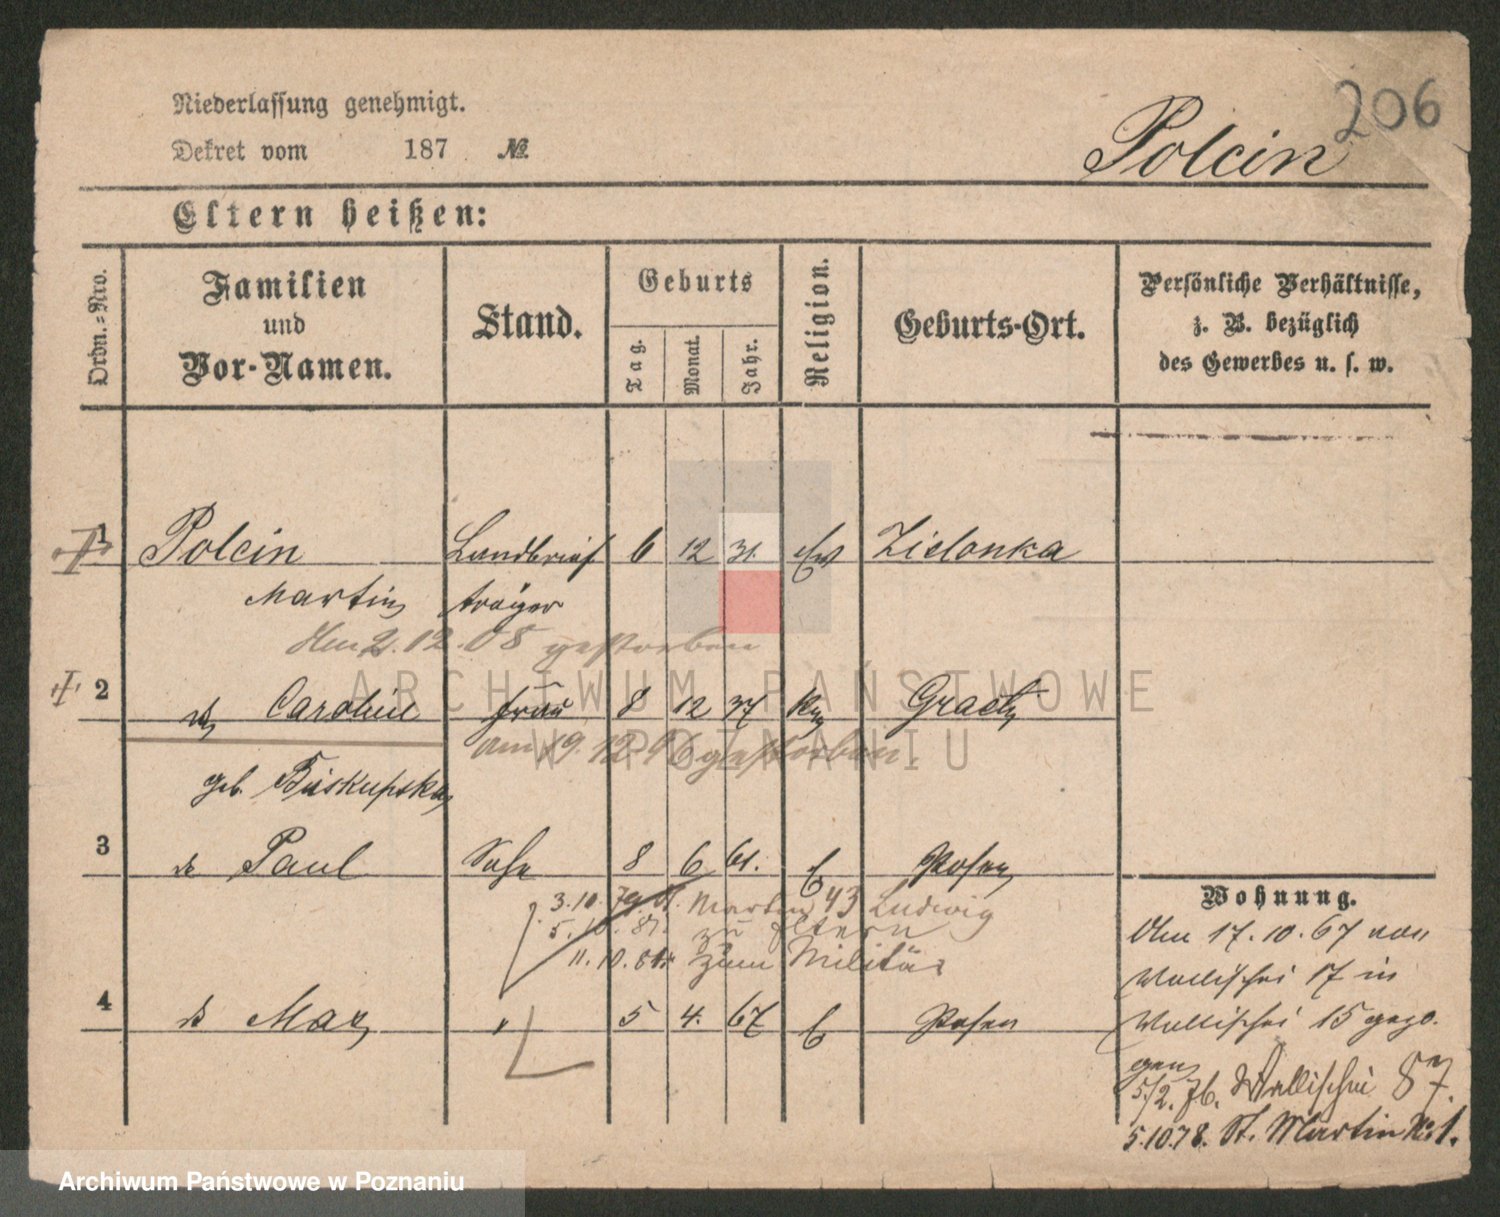 206
Niederlassung genehmigt.
Dekret vom 187 №
Polcin
Eltern heißen:
Ordn.-Nro.
Familien
und
Vor-Namen.
Stand.
Geburts
Tag.
Monat.
Jahr.
Religion.
Geburts-Ort.
Persönliche Verhältnisse,
z. B. bezüglich
des Gewerbes u. s. w.
1 Polcin Landbrief 6 12 31. Zielonka
Martin träger
2.12.08 gestorben
2 Caroline Frau 8 12 37
am 19.12. gestorben.
geb. Biskupska
3 Paul Sohn 8 6 61. Posen
3.10. 79 Martin 43 Ludwig
5.10. 81. zu Eltern
11.10.81 zum Militär
4 Max " 5 4. 67 Posen
Wohnung.
Am 17.10.67 von
Wallischei 17 in
Wallischei 15 gezo-
gen
5/2. 76. Wallischei 87.
5.10.78. St. Martin № 1.
ARCHIWUM PAŃSTWOWE
W POZNANIU
Archiwum Państwowe w Poznaniu